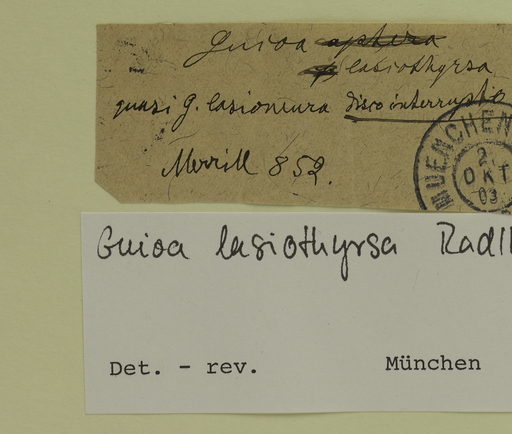 Guioa aphera
lasiothyrsa
quasi G. lasioneura disco interrupto
Merrill 852.
MUENCHEN
2.
OKT
03
Guioa lasiothyrsa Radlk
Det. - rev.
München